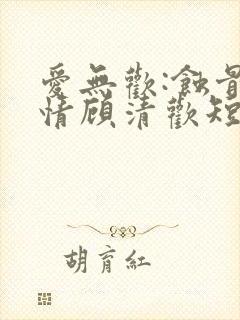 愛無歡:蝕骨
情顾清歡短
胡育紅